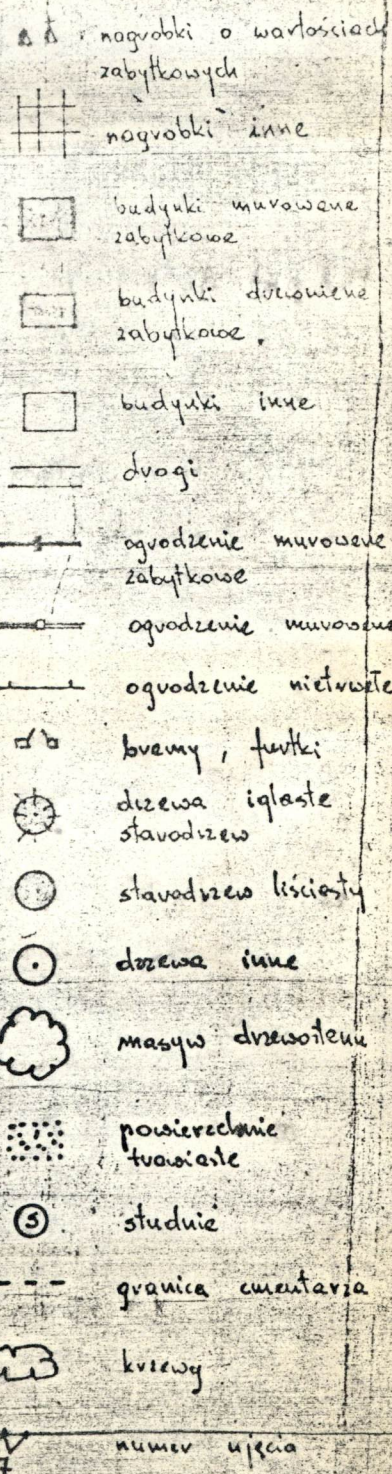 nagrobki o wartościach
zabytkowych
nagrobki inne
budynki murowane
zabytkowe
budynki drewniane
zabytkowe
budynki inne
drogi
ogrodzenie murowane
zabytkowe
ogrodzenie murowane
ogrodzenie nietrwałe
bramy, furtki
drzewa iglaste
starodrzew
starodrzew liściasty
drzewa inne
masyw drzewostanu
powierzchnie
trawiaste
S studnie
granica cmentarza
krzewy
numer ujęcia
7